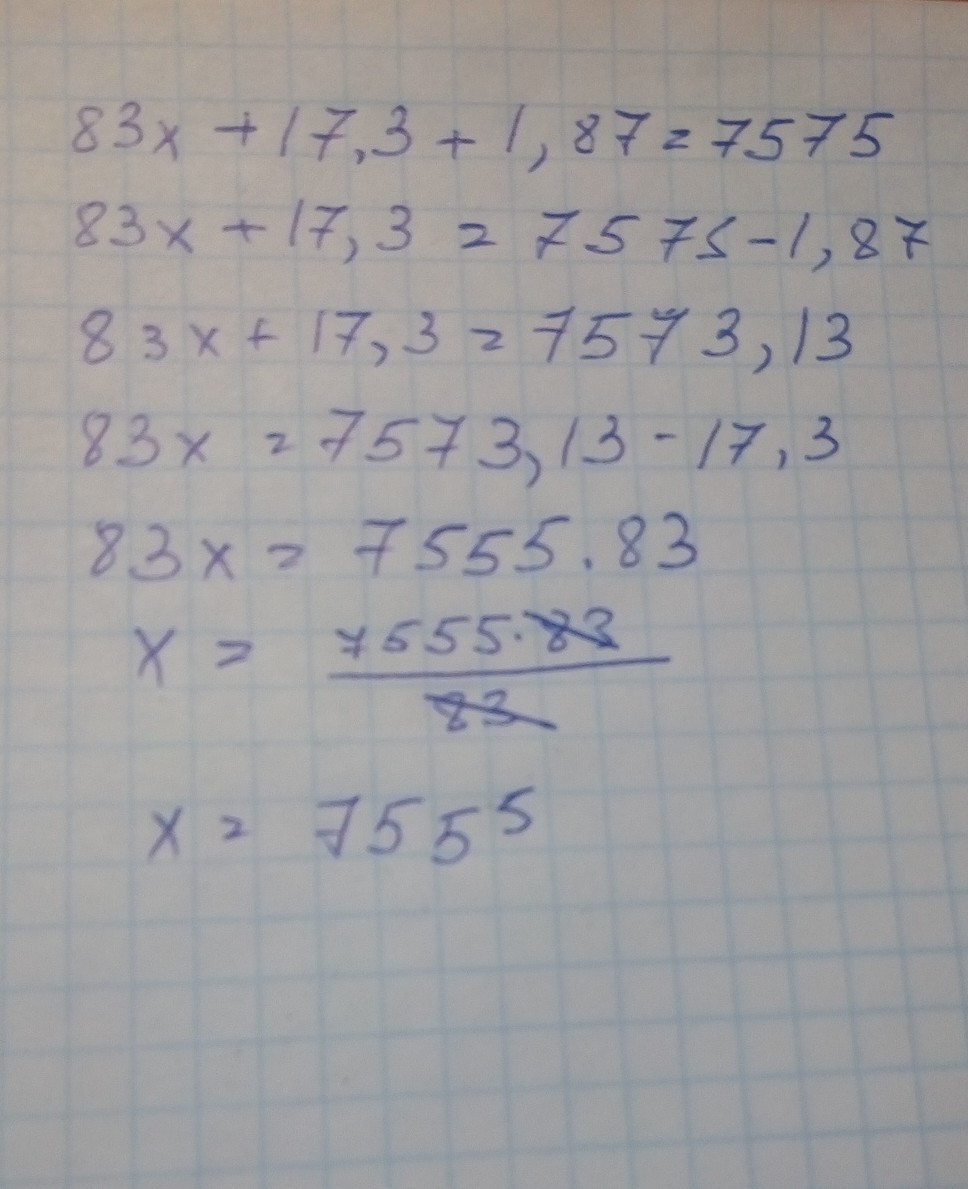 83x + 17,3 + 1,87 = 7575
83x + 17,3 = 7575 - 1,87
83x + 17,3 = 7573,13
83x = 7573,13 - 17,3
83x = 7555.83
x = 7555.83
83
x = 7555